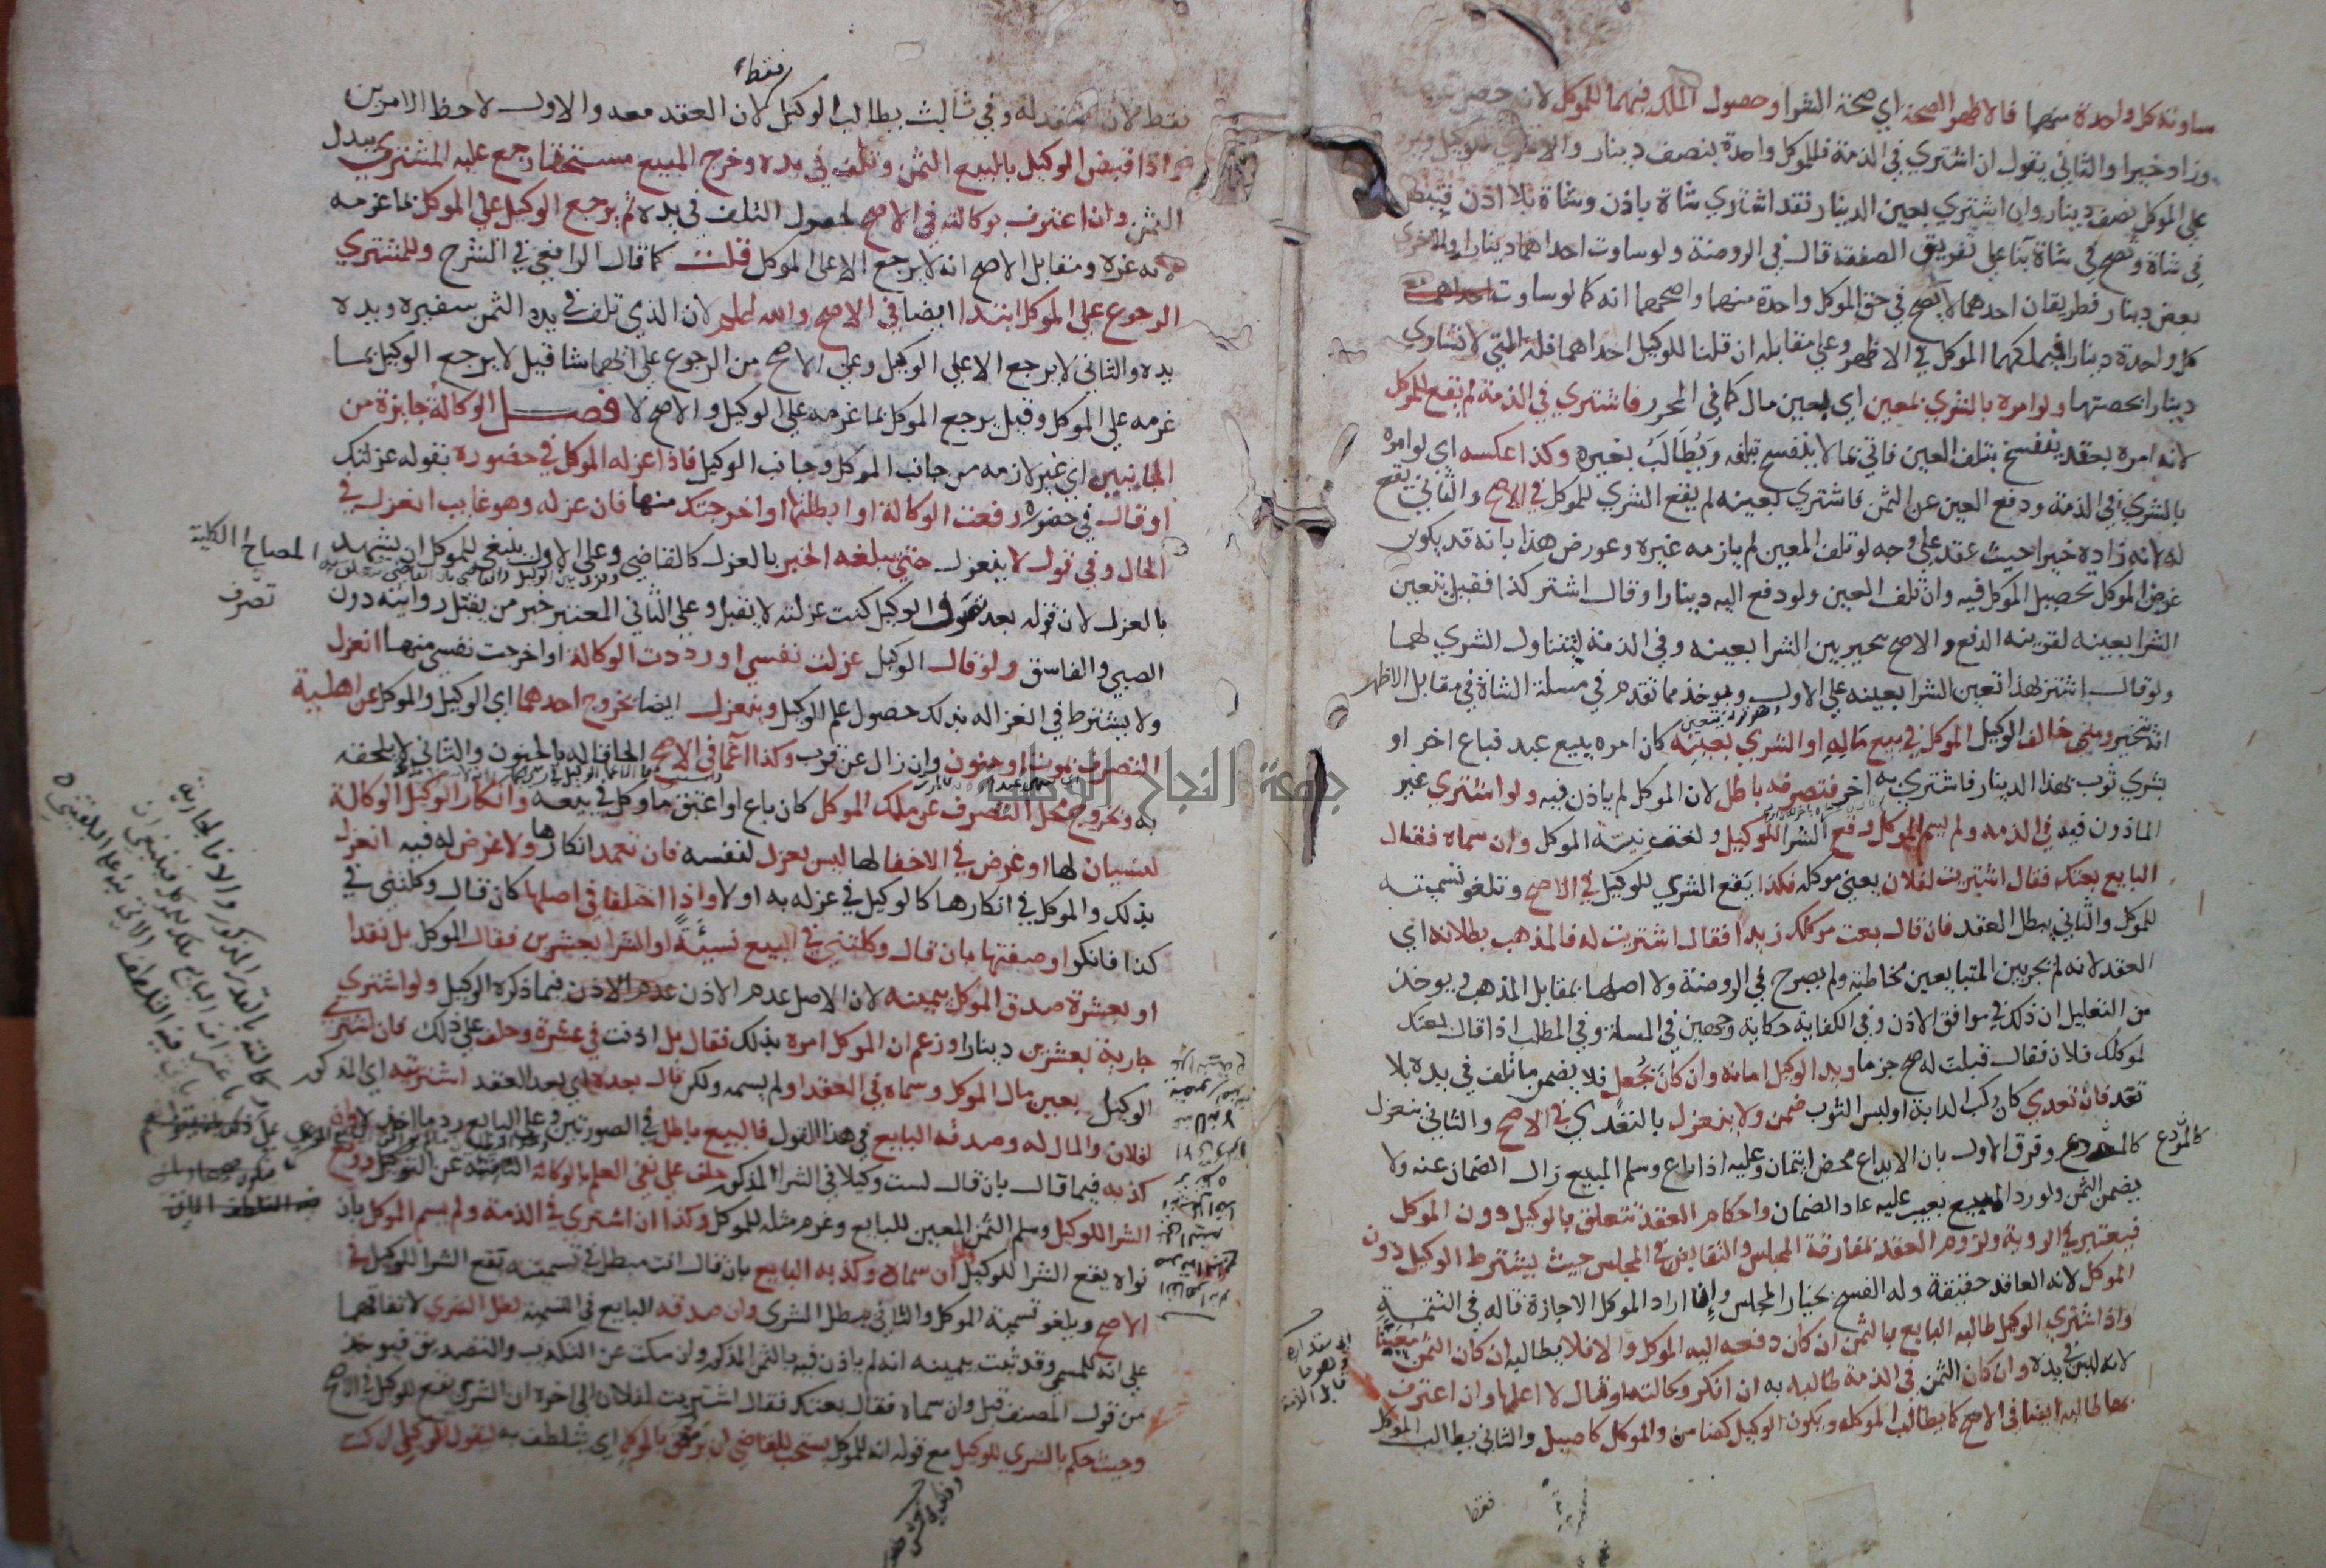 ساوته كل واحدة منهما فالاظهر الصحة اي صحة الشرا وحصول الملك فيهما للموكل لان
وزاد خيرا والثاني يقول ان اشتري في الذمة فللموكل واحدة بنصف دينار والاخري للوكيل
علي الموكل نصف دينار وان اشتري بعين الدينار فقد اشتري شاة باذن وشاة بلا اذن فيبطل
في شاة ويصح في شاة بنا علي تفريق الصفقة قال في الروضة ولو ساوت احداهما دينارا والاخري
بعض دينار فطريقان احدهما لا يصح في حق الموكل واحدة منهما واصحهما انه كما لو ساوت
كل واحدة دينارا فيملكهما الموكل في الاظهر وعلي مقابله ان قلنا للوكيل احداهما فله التي لا تساوي
دينارا بحصتها ولو امره بالشري بمعين اي بعين مال كما في المحرر فاشتري في الذمة لم يقع للموكل
لانه امره بعقد ينفسخ بتلف العين فاتي بما لا ينفسخ بتلفه ويطالب بغيره وكذا عكسه اي لو امره
بالشري في الذمة ودفع العين عن الثمن فاشتري بعينه لم يقع الشري للموكل في الاصح والثاني يقع
له لانه زاده خيرا حيث عقد علي وجه لو تلف المعين لم يلزمه غيره وعورض هذا بانه قد يكون
غرض الموكل تحصيل الموكل فيه وان تلف العين ولو دفع اليه دينارا وقال اشتر كذا فقيل يتعين
الشرا بعينه لقرينة الدفع والاصح يتخير بين الشرا بعينه وفي الذمة لتناول الشري لهما
ولو قال اشتر بهذا تعين الشرا بعينه علي الاول ويوخذ مما تقدم في مسلة الشاة في مقابل الاظهر
انه يتخير ومتي خالف الوكيل الموكل في بيع ماله او الشري بعينه كان امره ببيع عبد فباع اخر او
بشري ثوب بهذا الدينار فاشتري به اخر فتصرفه باطل لان الموكل لم ياذن فيه ولو اشتري غير
الماذون فيه في الذمة ولم يسم الموكل وقع الشرا للوكيل ولغت نية الموكل وان سماه فقال
البايع بعتك فقال اشتريت لفلان يعني موكله فكذا يقع الشري للوكيل في الاصح وتلغو تسميته
للموكل والثاني يبطل العقد فان قال بعت موكلك زيدا فقال اشتريت له فالمذهب بطلانه اي
العقد لانه لم يجر بين المتبايعين مخاطبة ولم يصرح في الروضة ولا اصلها بمقابل المذهب ويوخذ
من التعليل ان ذلك في موافق الاذن وفي الكفاية حكاية وجهين في المسلة وفي المطلب اذا قال بعتك
لموكلك فلان فقال قبلت له صح جزما ويد الوكيل امانة وان كان بجعل فلا يضمن ما تلف في يده بلا
تعد فان تعدي كان ركب الدابة او لبس الثوب ضمن ولا ينعزل بالتعدي في الاصح والثاني ينعزل
كالمودع وفرق الاول بان الايداع محض ايتمان وعليه اذا باع وسلم المبيع زال الضمان عنه ولا
كالمودع
يضمن الثمن ولو رد المبيع بعيب عليه عاد الضمان واحكام العقد تتعلق بالوكيل دون الموكل
فيعتبر في الروية ولزوم العقد بمفارقة المجلس والتقابض في المجلس حيث يشترط الوكيل دون
الموكل لانه العاقد حقيقة وله الفسخ بخيار المجلس وان اراد الموكل الاجازة قاله في التتمة
واذا اشتري الوكيل طالبه البايع بالثمن ان كان دفعه اليه الموكل والا فلا يطالبه ان كان الثمن معينا
لانه ليس في يده وان كان الثمن في الذمة طالبه به ان انكر وكالته او قال لا اعلمها وان اعترف
بها طالبه ايضا في الاصح كما يطالب الموكل ويكون الوكيل كضامن والموكل كاصيل والثاني يطالب الموكل
فقط
فقط
فقط لان العقد له وفي ثالث يطالب الوكيل لان العقد معه والاول لاحظ الامرين
واذا قبض الوكيل بالبيع الثمن وتلف في يده وخرج المبيع مستحقا رجع عليه المشتري ببدل
الثمن وان اعترف بوكالته في الاصح لحصول التلف في يده ثم يرجع الوكيل علي الموكل بما غرمه
لانه غره ومقابل الاصح انه لا يرجع الا علي الموكل قلت كما قال الرافعي في الشرح وللمشتري
الرجوع علي الموكل ابتدا ايضا في الاصح والله اعلم لان الذي تلف في يده الثمن سفيره ويده
يده والثاني لا يرجع الا علي الوكيل وعلي الاصح من الرجوع علي ايهما شا قيل لا يرجع الوكيل بما
غرمه علي الموكل وقيل يرجع الموكل بما غرمه علي الوكيل والاصح لا فصل الوكالة جايزة من
الجانبين اي غير لازمه من جانب الموكل وجانب الوكيل فاذا عزله الموكل في حضوره بقوله عزلتك
او قال في حضوره رفعت الوكالة او ابطلتها او اخرجتك منها فان عزله وهو غايب انعزل في
الحال وفي قول لا ينعزل حتي يبلغه الخبر بالعزل كالقاضي وعلي الاول ينبغي للموكل ان يشهد
المصالح الكلية
تصرف
بالعزل لان قوله بعد تصرف الوكيل كنت عزلته لا يقبل وعلي الثاني المعتبر خبر من يقبل روايته دون
الصبي والفاسق ولو قال الوكيل عزلت نفسي او رددت الوكالة او اخرجت نفسي منها انعزل
ولا يشترط في انعزاله بذلك حصول علم الوكيل وينعزل ايضا بخروج احدهما اي الوكيل والموكل عن اهلية
التصرف بموت او جنون وان زال عن قرب وكذا اغما في الاصح الحاقا له بالجنون والثاني لا يلحقه
به وبخروج محل التصرف عن ملك الموكل كان باع او اعتق ما وكل في بيعه وانكار الوكيل الوكالة
لنسيان لها او غرض في الاخفا لها ليس بعزل لنفسه فان تعمد انكارها ولا غرض له فيه انعزل
بذلك والموكل في انكارها كالوكيل في عزله به او لا واذا اختلفا في اصلها كان قال وكلتني في
كذا فانكر او صفتها بان قال وكلتني في البيع نسيئة او الشرا بعشرين فقال الموكل بل نقدا
او بعشرة صدق الموكل بيمينه لان الاصل عدم الاذن فيما ذكره الوكيل ولو اشتري
جارية بعشرين دينارا وزعم ان الموكل امره بذلك فقال بل اذنت في عشرة وحلف علي ذلك فان اشتري
الوكيل بعين مال الموكل وسماه في العقد او لم يسمه ولكن قال بعده اي بعد العقد اشتريته اي المذكور
لفلان والمال له وصدقه البايع في هذا القول فالبيع باطل في الصورتين وعلي البايع رد ما اخذ
كذبه فيما قال بان قال لست وكيلا في الشرا المذكور حلف علي نفي العلم بالوكالة الناشية عن التوكيل ووقع
الشرا للوكيل وسلم الثمن المعين للبايع وغرم مثله للموكل وكذا ان اشتري في الذمة ولم يسم الموكل بان
نواه يقع الشرا للوكيل وان سماه وكذبه البايع بان قال انت مبطل في تسميته يقع الشرا للوكيل في
الاصح ويلغو تسمية الموكل والثاني يبطل الشري وان صدقه البايع في التسمية بطل الشري لاتفاقهما
علي انه للمسمي وقد ثبت بيمينه انه لم ياذن فيه بالثمن المذكور وان سكت عن التكذيب والتصديق فيوخذ
من قول المصنف قبل وان سماه فقال بعتك فقال اشتريت لفلان الي اخره ان الشري يقع للوكيل في الاصح
وحيث حكم بالشري للوكيل مع قوله انه للموكل يستحب للقاضي ان يرفق بالموكل اي يتلطف به ليقول للوكيل ان كنت
جامعة النجاح الوطنية